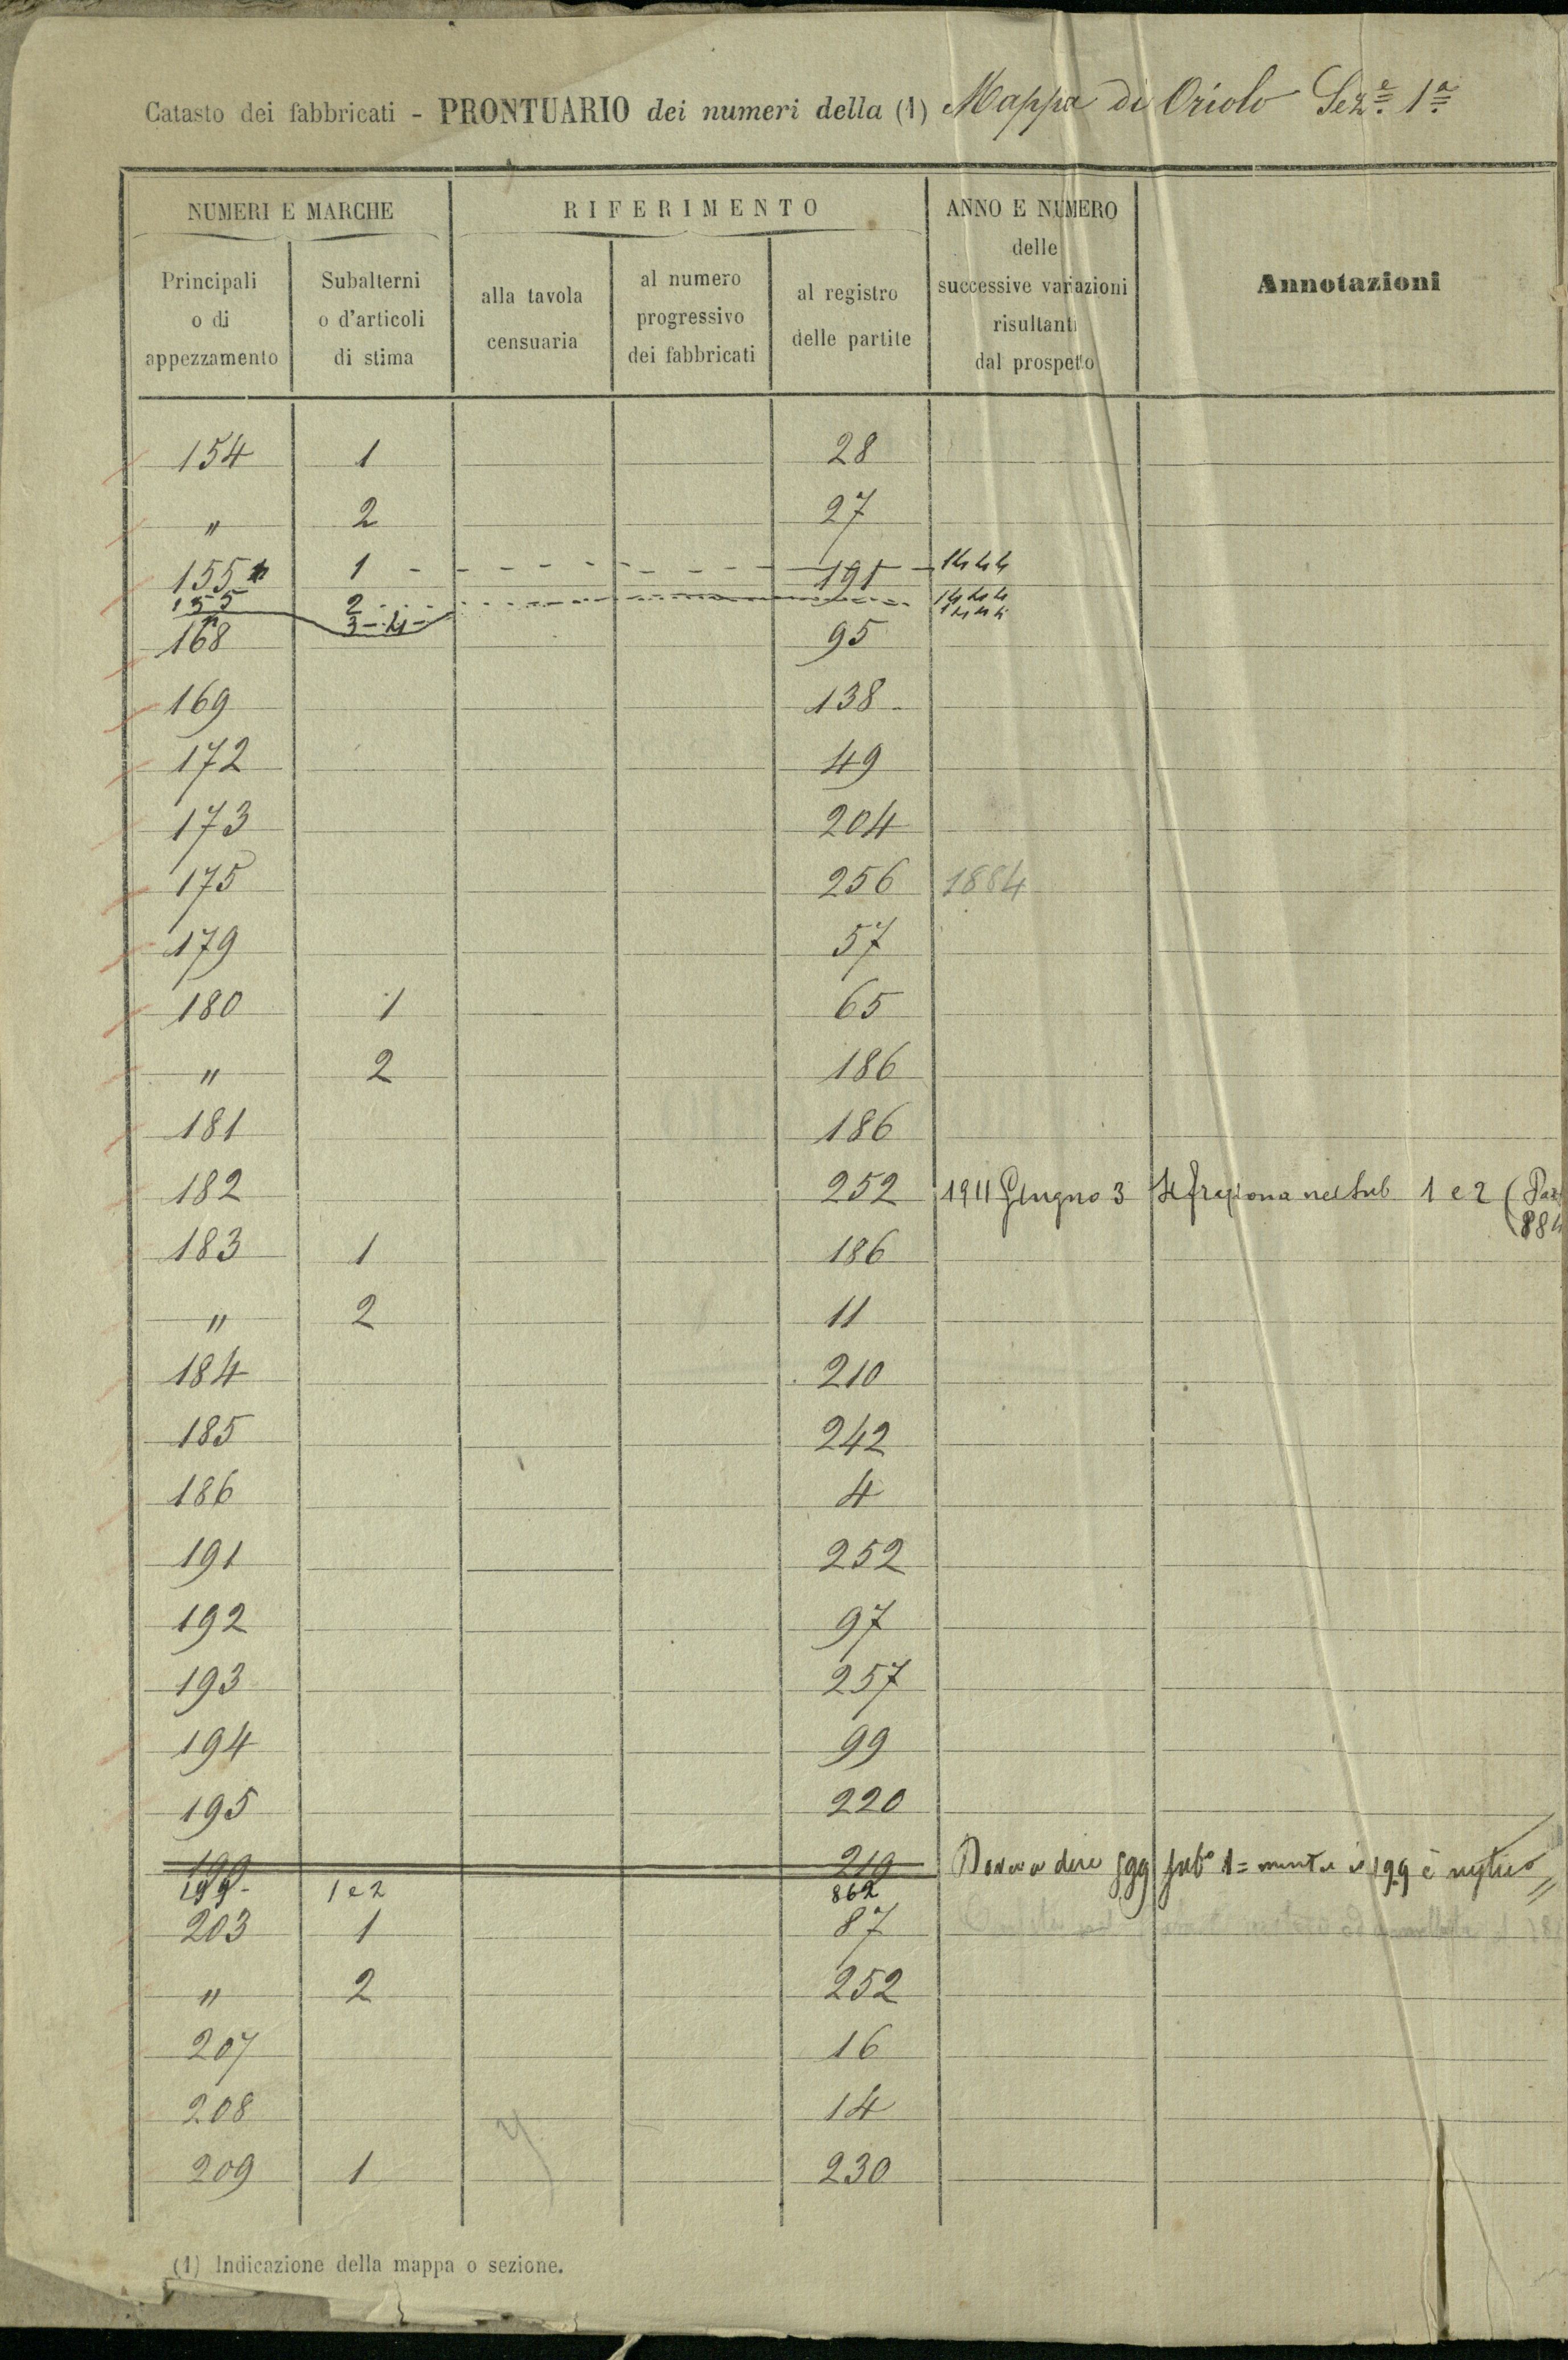 Catasto dei fabbricati - PRONTUARIO dei numeri della (1) Mappa di Oriolo Sez.e 1a
NUMERI E MARCHE
RIFERIMENTO
ANNO E NUMERO
delle
successive variazioni
risultanti
dal prospetto
Annotazioni
Principali
o di
appezzamento
Subalterni
o d'articoli
di stima
alla tavola
censuaria
al numero
progressivo
dei fabbricati
al registro
delle partite
154 1 28
" 2 27
155 1 191 1444
155 2 1444
3-4 1444
168 95
169 138
172 49
173 204
175 256 1884
179 57
180 1 65
" 2 186
181 186
182 252 1911 Giugno 3 Si fraziona nei sub 1 e 2 (
183 1 186
" 2 11
184 210
185 242
186 4
191 252
192 97
193 257
194 99
195 220
199 219 sub° 1 = 199 è
199 1 e 2 862
203 1 87
" 2 252
207 16
208 14
209 1 230
(1) Indicazione della mappa o sezione.